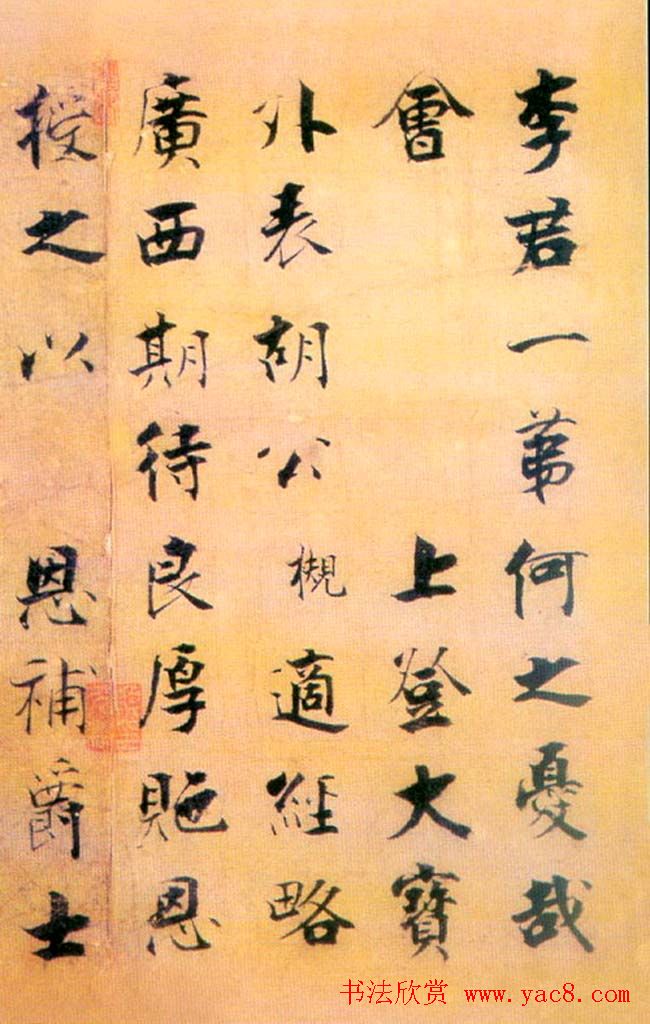 李君一第何之憂哉
會 上登大寶
外表胡公槻適經略
廣西期待良厚貤恩
授之以 恩補爵士
书法欣赏 www.yac8.com